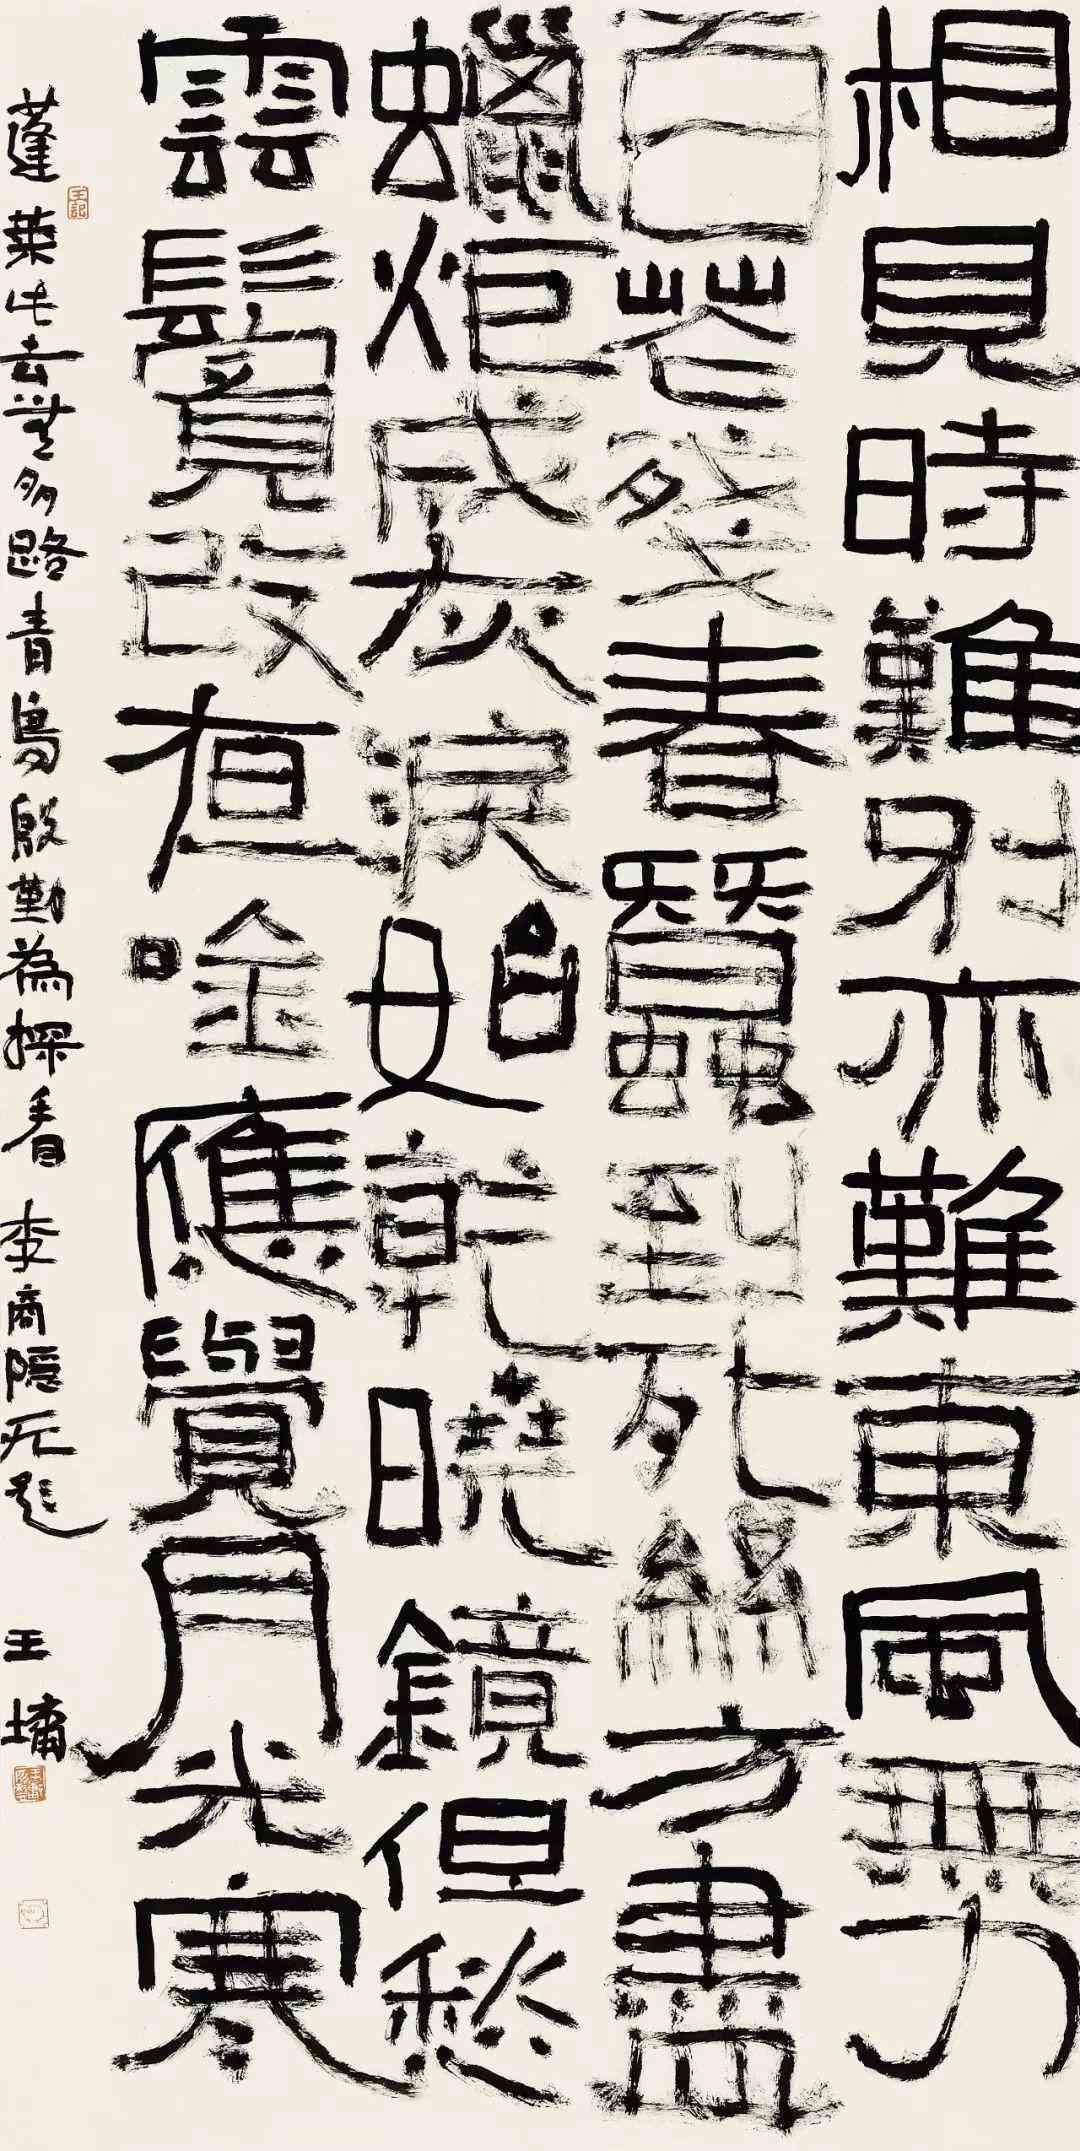 相見時難別亦難東風無力
百花殘春蠶到死絲方盡
蠟炬成灰淚始乾曉鏡但愁
雲鬢改夜吟應覺月光寒
蓬萊此去無多路青鳥殷勤為探看 李商隱无題 王墉